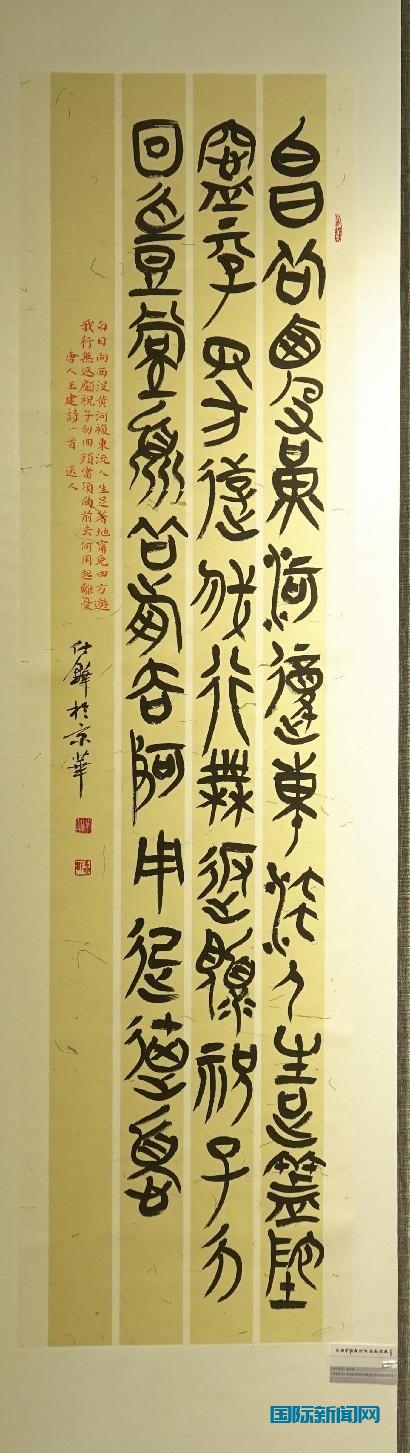 白日向西没黄河復東流人生足著地
寧免四方遊我行無返顧祝子勿
回頭當須向前去何用起離憂
白日向西没黄河複東流人生足著地甯免四方遊
我行無返顧祝子勿回頭當須向前去何用起離憂
唐人王建詩一首 送人
仕鋒於京華
国际新闻网